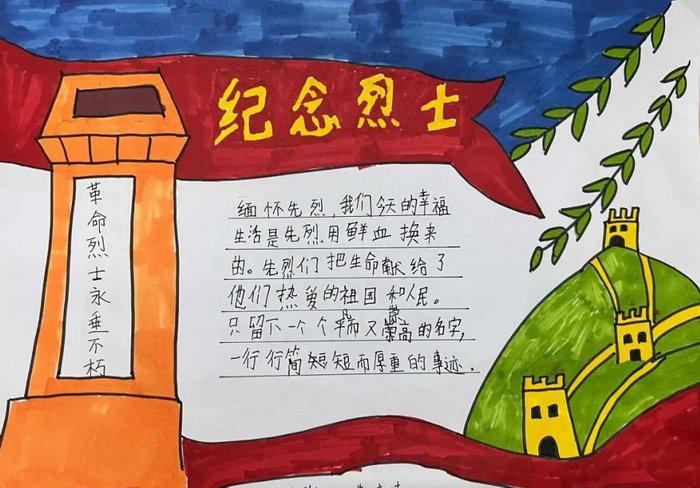 纪念烈士
革命烈士永垂不朽
缅怀先烈,我们今天的幸福
生活是先烈用鲜血换来
的。先烈们把生命献给了
他们热爱的祖国和人民。
只留下一个个平凡而又崇高的名字,
一行行简短短而厚重的事迹.